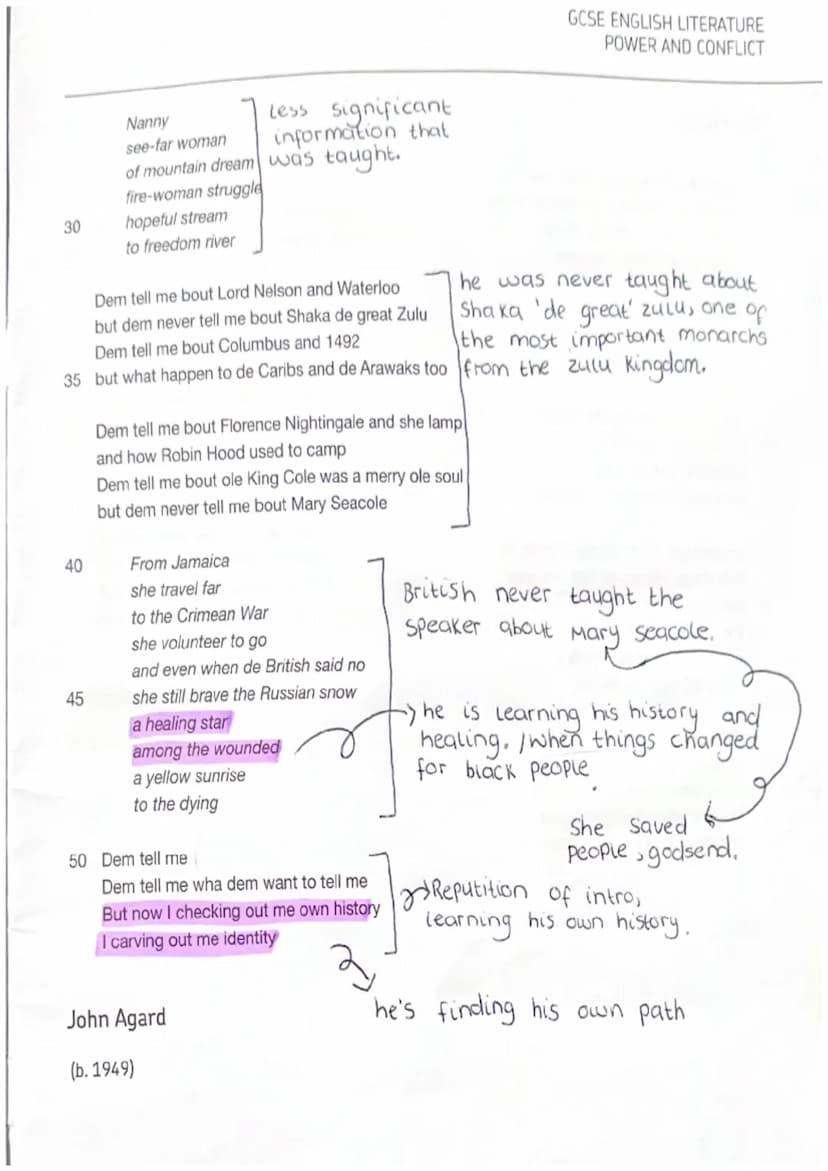 GCSE ENGLISH LITERATURE
POWER AND CONFLICT
Nanny
see-far woman
of mountain dream
fire-woman struggle
30 hopeful stream
to freedom river
Less significant
information that
was taught.
Dem tell me bout Lord Nelson and Waterloo
but dem never tell me bout Shaka de great Zulu
Dem tell me bout Columbus and 1492
35 but what happen to de Caribs and de Arawaks too
he was never taught about
Shaka 'de great' zulu, one of
the most important monarchs
from the zulu kingdom.
Dem tell me bout Florence Nightingale and she lamp
and how Robin Hood used to camp
Dem tell me bout ole King Cole was a merry ole soul
but dem never tell me bout Mary Seacole
40 From Jamaica
she travel far
to the Crimean War
she volunteer to go
and even when de British said no
45 she still brave the Russian snow
a healing star
among the wounded
a yellow sunrise
to the dying
British never taught the
speaker about Mary seacole.
he is learning his history and
healing. /when things changed
for black people.
She saved
people, godsend.
50 Dem tell me
Dem tell me wha dem want to tell me
But now I checking out me own history
I carving out me identity
Reputition of intro,
learning his own history.
he's finding his own path
John Agard
(b. 1949)